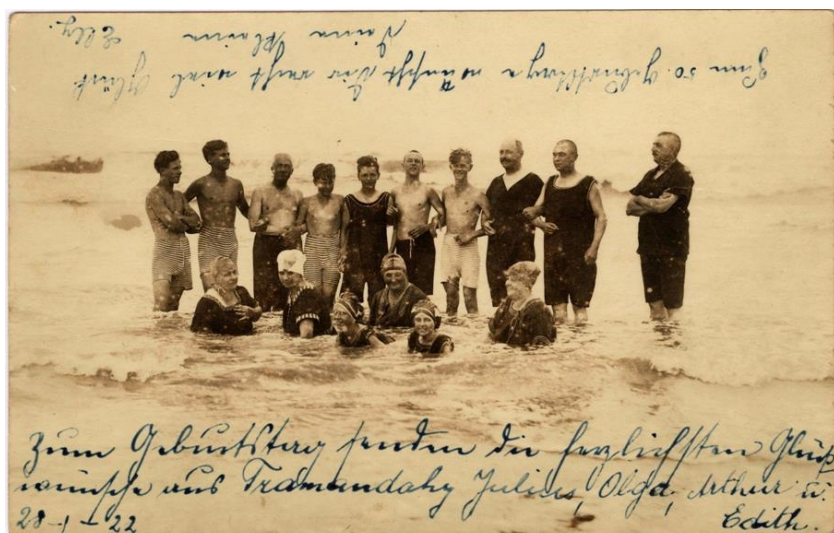 Zum 50. Geburtstage wünscht Dir recht viel Glück
Deine kleine Elly.
Zum Geburtstag senden die herzlichsten Glück
wünsche aus Tramandahy Julius, Olga, Arthur u.
28-1-22 Edith.